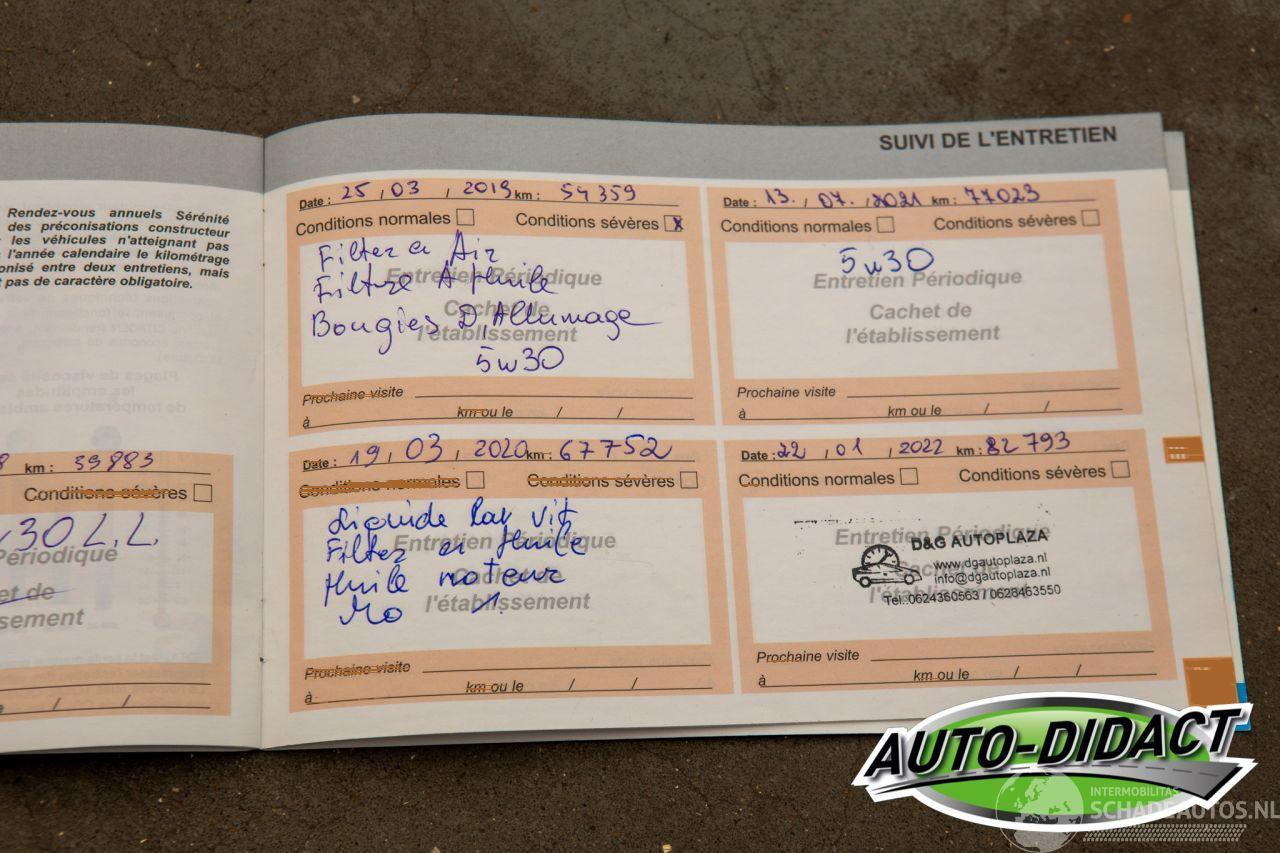 SUIVI DE L'ENTRETIEN
Rendez-vous annuels Sérénité
des préconisations constructeur
les véhicules n'atteignant pas
l'année calendaire le kilométrage
onisé entre deux entretiens, mais
t pas de caractère obligatoire.
km : 39883
Conditions sévères
30 L.L.
Périodique
et de
sement
Date : 25 / 03 / 2019 km : 54359
Conditions normales Conditions sévères x
Filter a Air
Entretien Périodique
Filture A Huile
Cachet de
Bougies D'Allumage
l'établissement
5w30
Prochaine visite
à km ou le / /
Date : 19 / 03 / 2020 km : 67752
Conditions normales Conditions sévères
Liquide Lav Vit
Filter a Huile
Entretien Périodique
Huile moteur
Cachet de
l'établissement
Prochaine visite
à km ou le / /
Date : 13. / 07. / 2021 km : 77023
Conditions normales Conditions sévères
5w30
Entretien Périodique
Cachet de
l'établissement
Prochaine visite
à km ou le / /
Date : 22 / 01 / 2022 km : 82793
Conditions normales Conditions sévères
Entretien Périodique
D&G AUTOPLAZA
www.dgautoplaza.nl
Cachet de
info@dgautoplaza.nl
l'établissement
Tel.:0624360563 / 0628463550
Prochaine visite
à km ou le / /
AUTO-DIDACT
INTERMOBILITAS
SCHADEAUTOS.NL